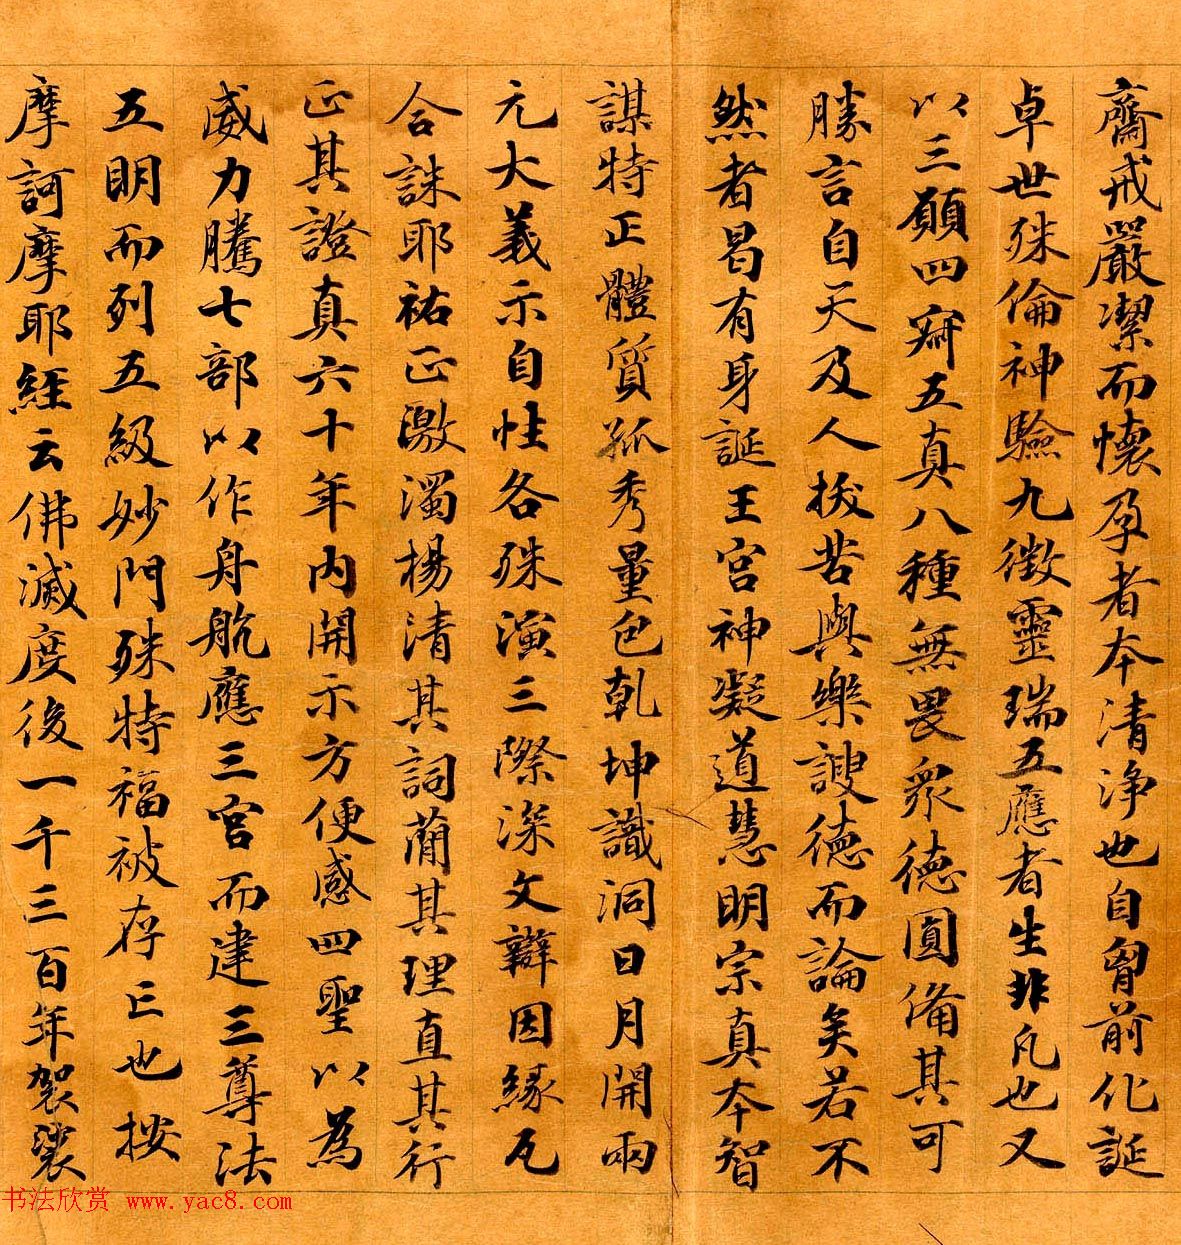 齋戒嚴潔而懷孕者本清淨也自胷前化誕
卓世殊倫神驗九徵靈瑞五應者生非凡也又
以三願四寂五真八種無畏衆德圓備其可
勝言自天及人拔苦與樂謏德而論矣若不
然者曷有身誕王宮神凝道慧明宗真本智
謀特正體質孤秀量包乾坤識洞日月開兩
元大義示自性各殊演三際深文辯因緣瓦
合誅耶祐正激濁楊清其詞蕳其理直其行
正其證真六十年内開示方便感四聖以為
威力騰七部以作舟航應三宮而建三尊法
五明而列五級妙門殊特福被存亡也按
摩訶摩耶經云佛滅度後一千三百年袈裟
书法欣赏 www.yac8.com